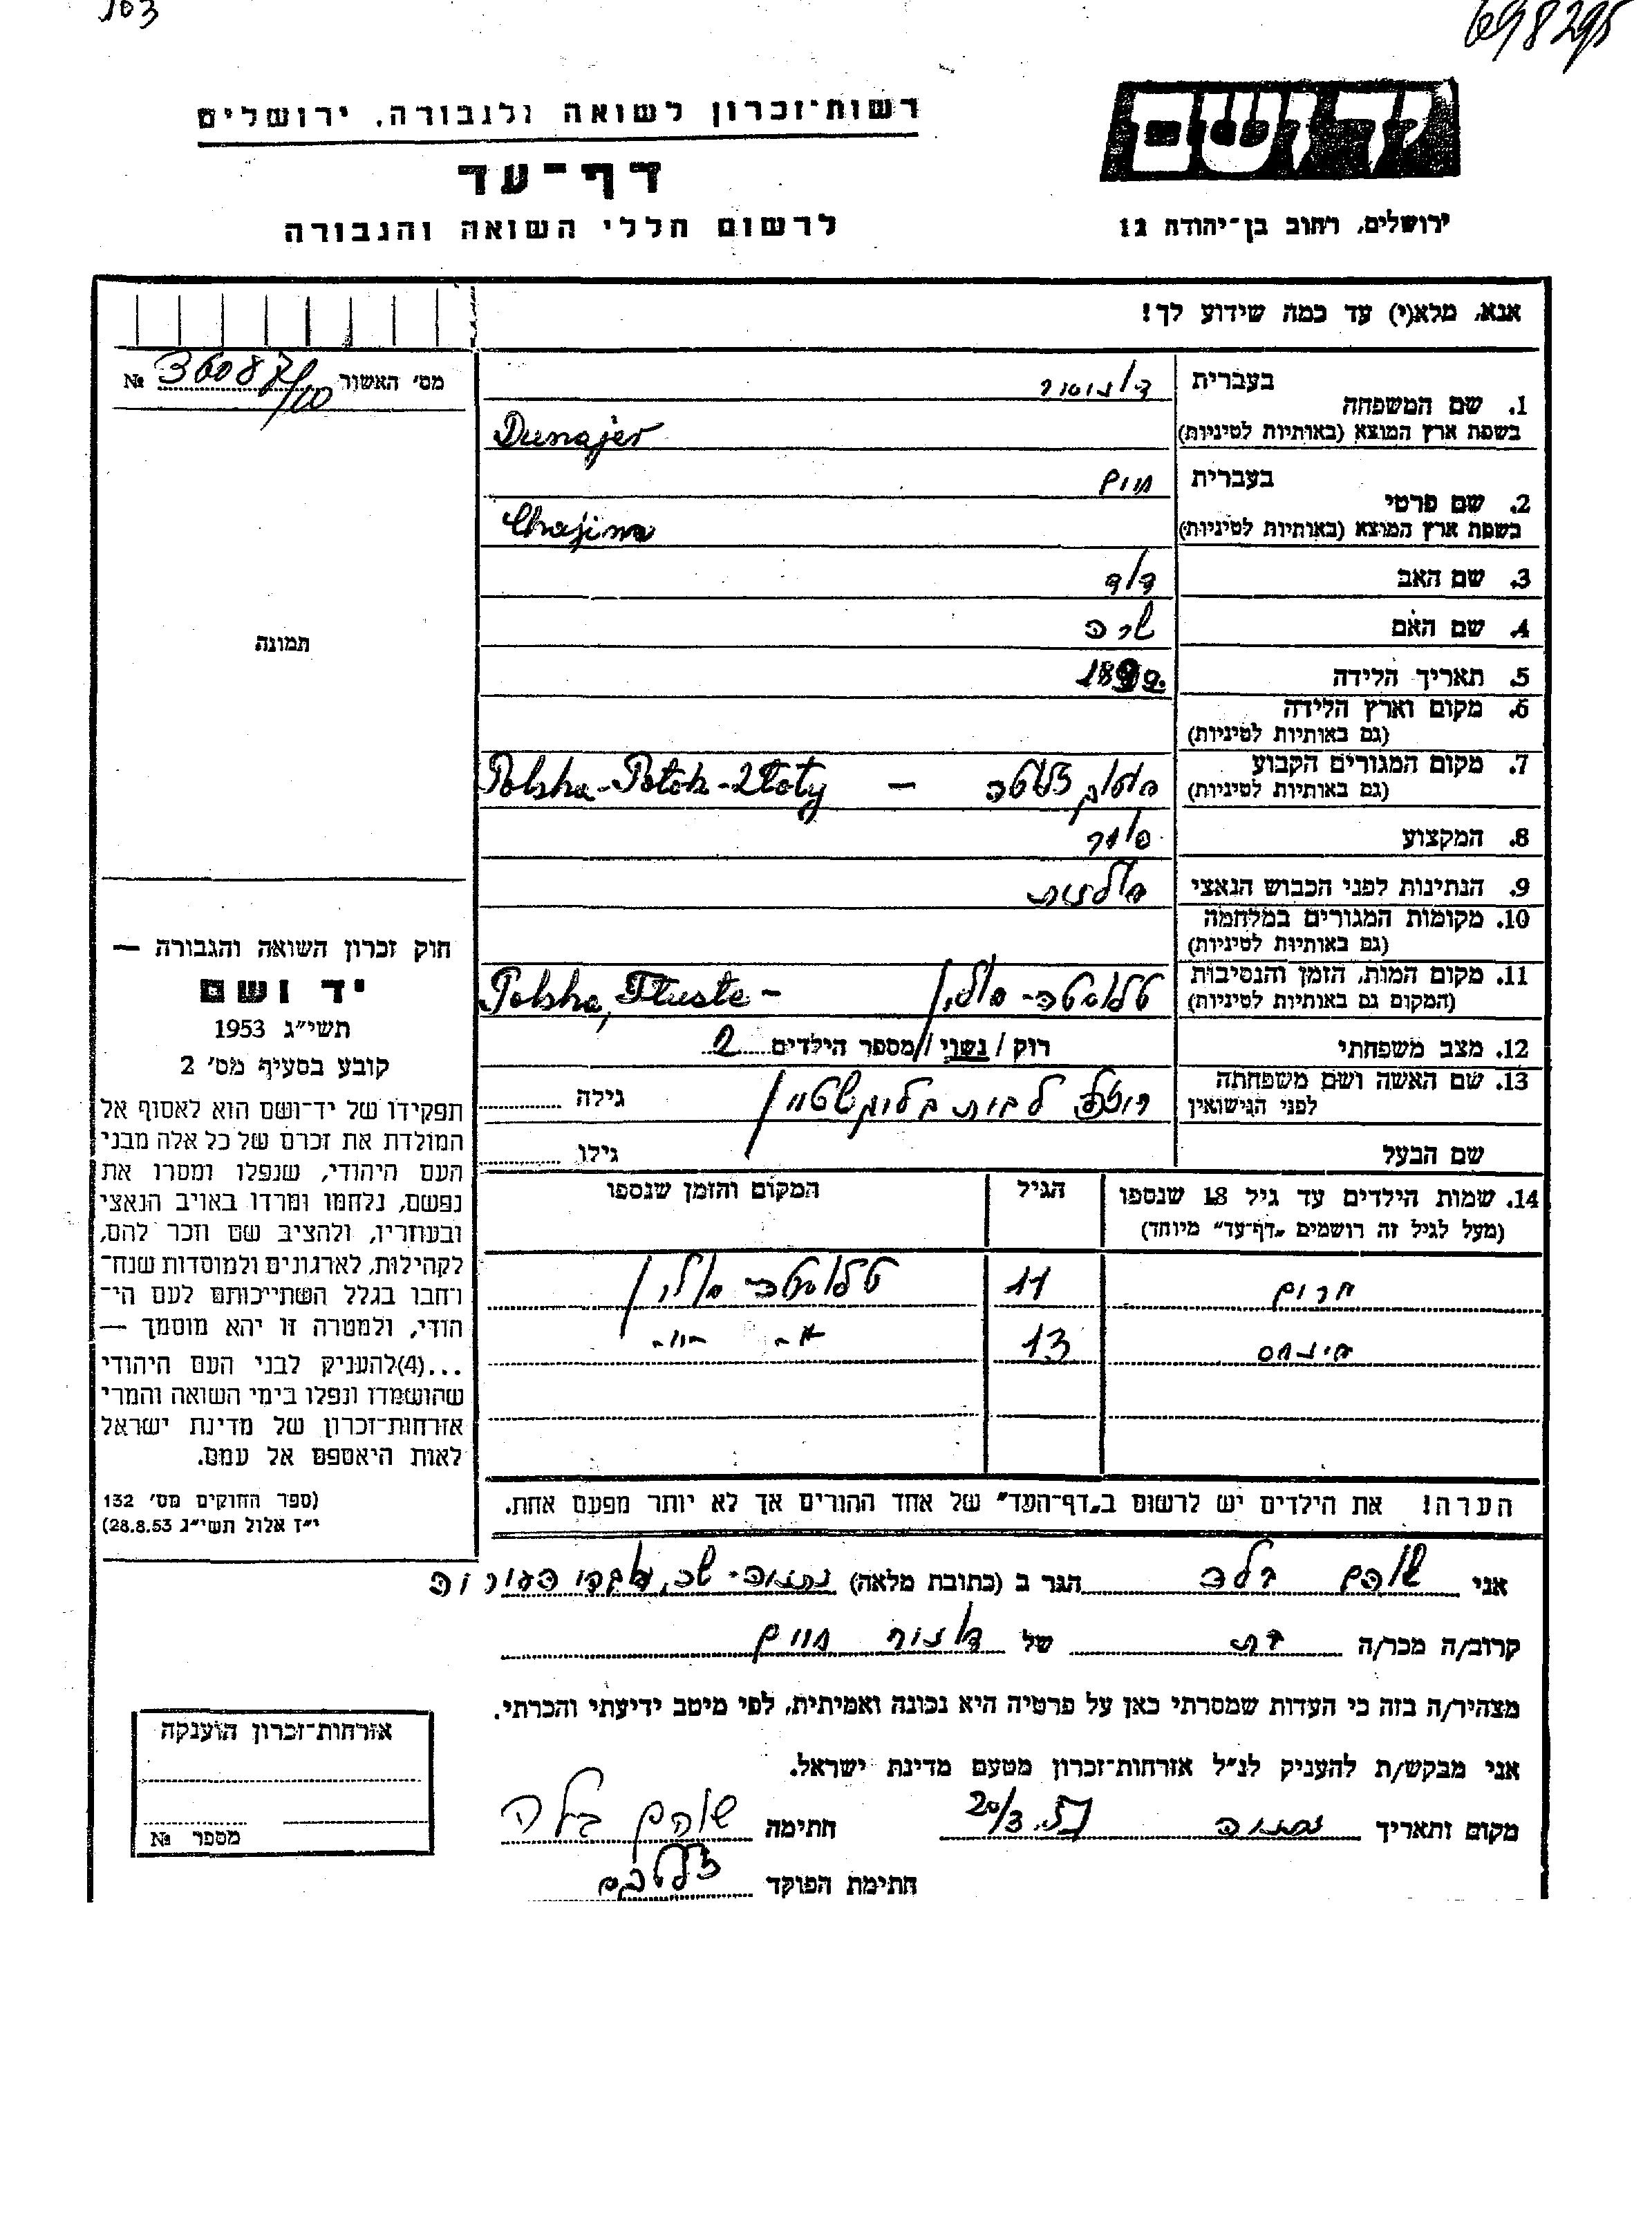 698295
רשות־זכרון לשואה ולגבורה, ירושלים
יד ושם
דף־עד
לרשום חללי השואה והגבורה
ירושלים, רחוב בן־יהודה 12
אנא, מלא(י) עד כמה שידוע לך!
מס' האשור 36087/100 №
1. שם המשפחה
בעברית
בשפת ארץ המוצא (באותיות לטיניות) Dunajer
2. שם פרטי
בעברית חיים
בשפת ארץ המוצא (באותיות לטיניות) Chajim
3. שם האב דוד
4. שם האם שרה
5. תאריך הלידה
6. מקום וארץ הלידה
(גם באותיות לטיניות)
7. מקום המגורים הקבוע
(גם באותיות לטיניות) Polska-Potok-Złoty –
8. המקצוע סוחר
9. הנתינות לפני הכבוש הנאצי פולנית
10. מקומות המגורים במלחמה
(גם באותיות לטיניות)
11. מקום המות, הזמן והנסיבות
(המקום גם באותיות לטיניות) טלוסטה - פולין Polska, Tłuste -
12. מצב משפחתי רוק / נשוי / מספר הילדים 2
13. שם האשה ושם משפחתה
לפני הנישואין לבית גילה
שם הבעל גילו
14. שמות הילדים עד גיל 18 שנספו
(מעל לגיל זה רושמים "דף־עד" מיוחד)
הגיל
המקום והזמן שנספו
11 טלוסטה פולין
פינחס 13
הערה! את הילדים יש לרשום ב"דף־העד" של אחד ההורים אך לא יותר מפעם אחת.
תמונה
חוק זכרון השואה והגבורה —
יד ושם
תשי"ג 1953
קובע בסעיף מס' 2
תפקידו של יד־ושם הוא לאסוף אל
המולדת את זכרם של כל אלה מבני
העם היהודי, שנפלו ומסרו את
נפשם, נלחמו ומרדו באויב הנאצי
ובעוזריו, ולהציב שם וזכר להם,
לקהילות, לארגונים ולמוסדות שנח־
רחבו בגלל השתייכותם לעם הי־
הודי, ולמטרה זו יהא מוסמך —
...(4)להעניק לבני העם היהודי
שהושמדו ונפלו בימי השואה והמרי
אזרחות־זכרון של מדינת ישראל
לאות היאספם אל עמם.
(ספר החוקים מס' 132
י"ז אלול תשי"ג 28.8.53)
אני שוהם בלה הגר ב (כתובת מלאה) נתניה
קרוב/ה מכר/ה בת של חיים
מצהיר/ה בזה כי העדות שמסרתי כאן על פרטיה היא נכונה ואמיתית, לפי מיטב ידיעתי והכרתי.
אני מבקש/ת להעניק לנ"ל אזרחות־זכרון מטעם מדינת ישראל.
מקום ותאריך נתניה 20/3 חתימה שוהם בלה
חתימת הפוקד
אזרחות־זכרון הוענקה
מספר №